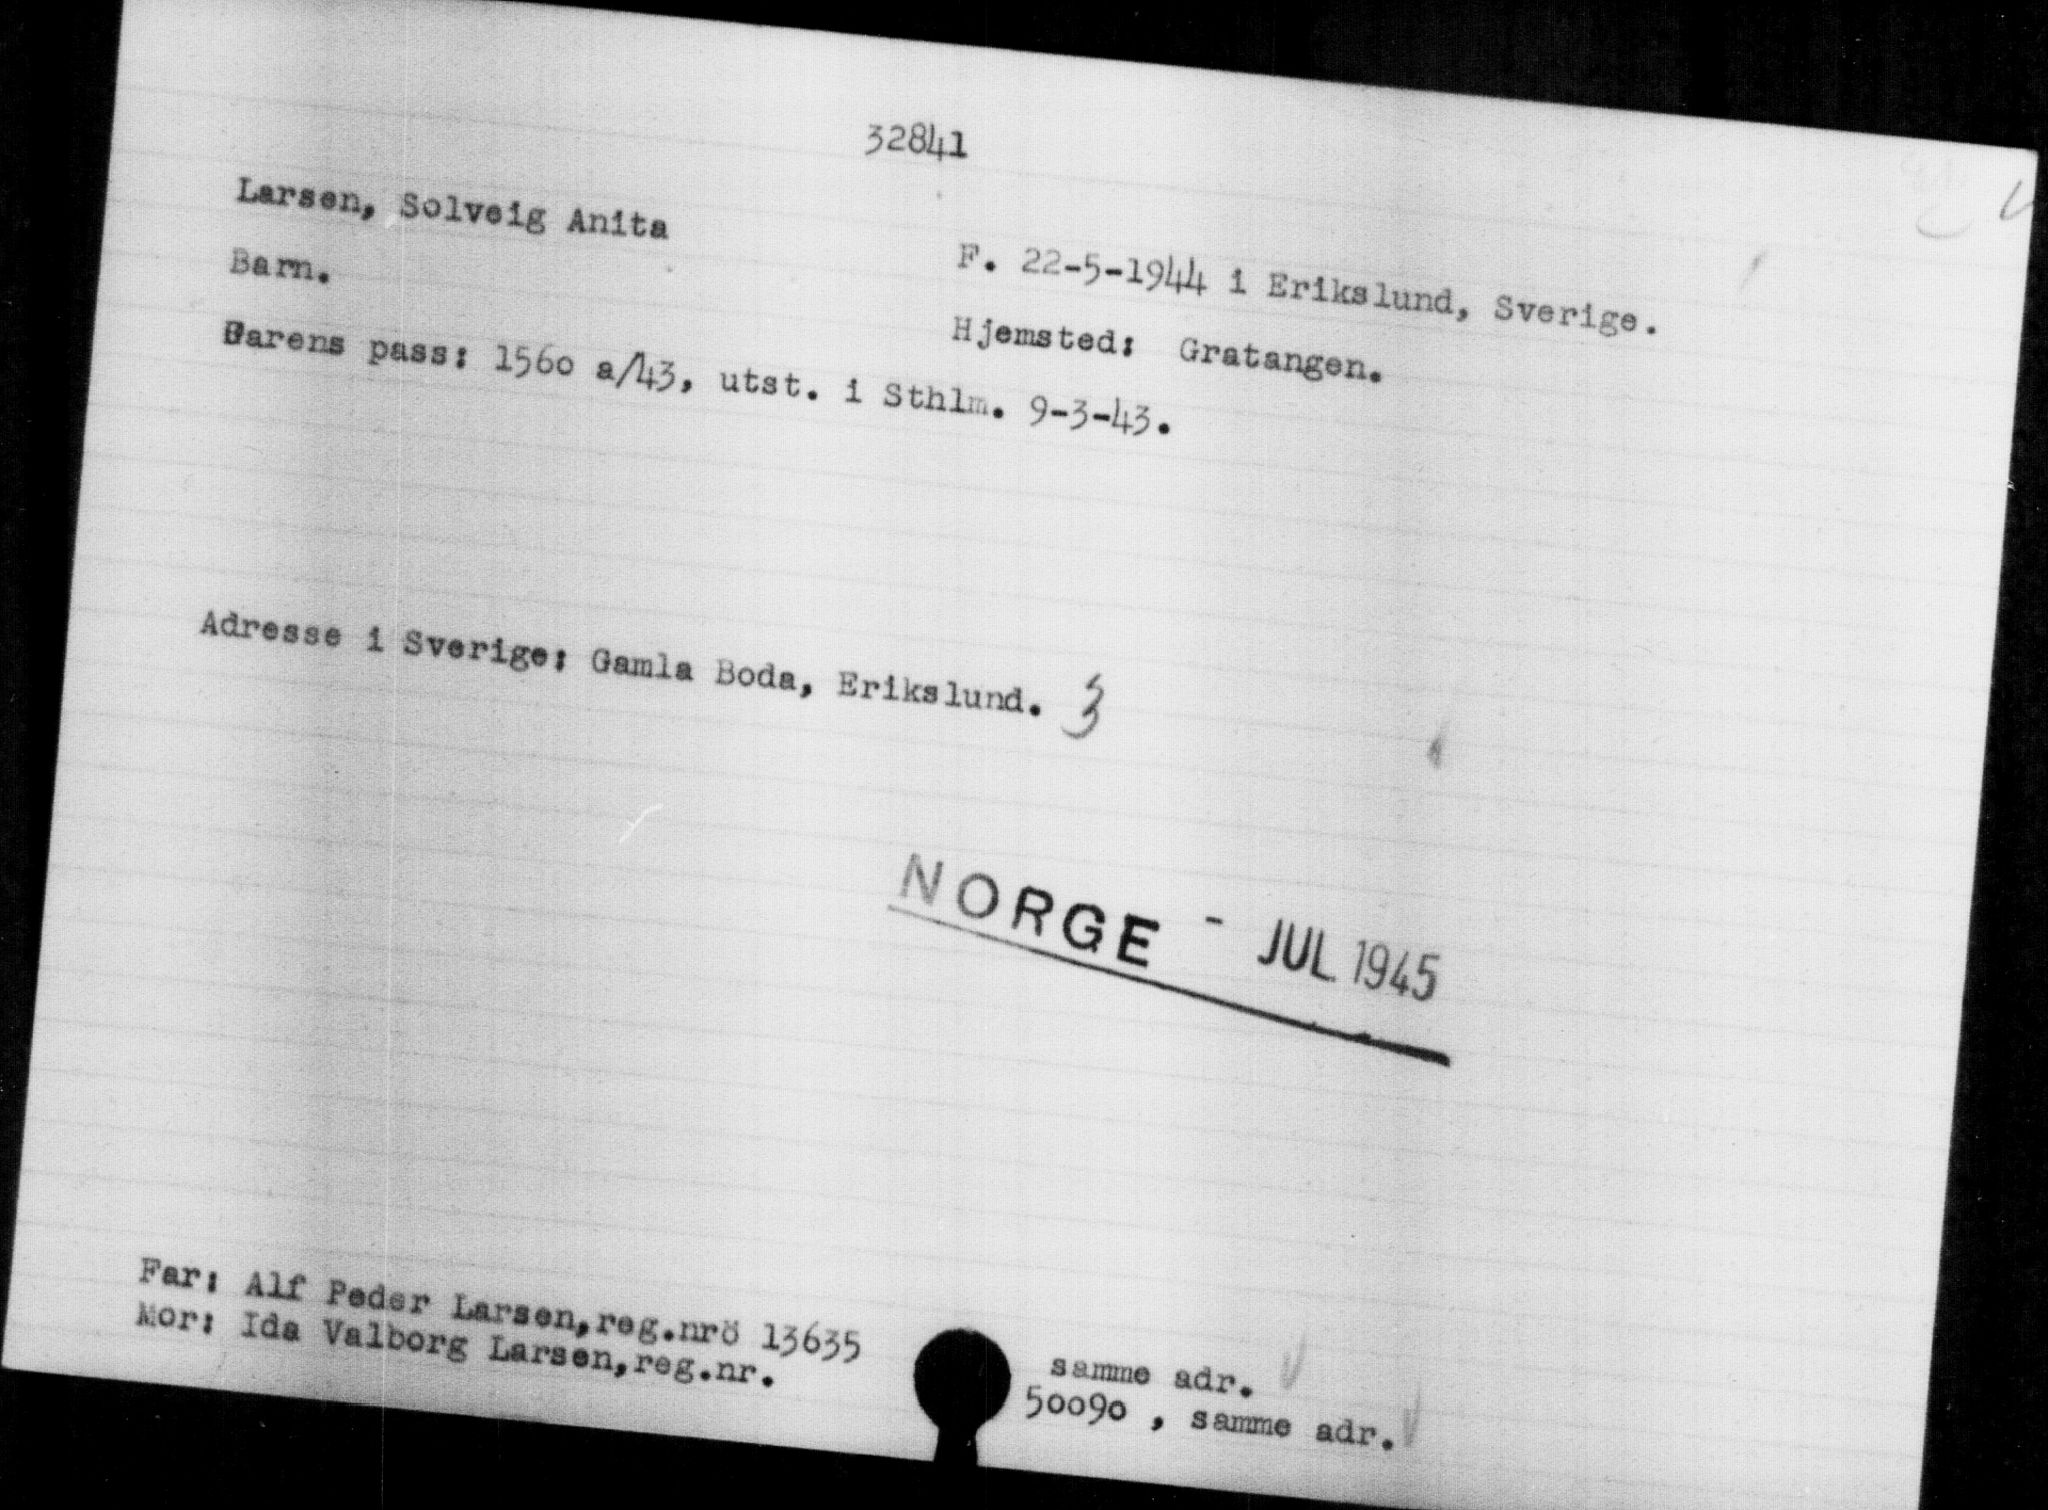 32841
Larsen, Solveig Anita
F. 22-5-1944 i Erikslund, Sverige.
Barn.
Hjemsted: Gratangen.
Farens pass: 1560 a/43, utst. i Sthlm. 9-3-43.
Adresse i Sverige: Gamla Boda, Erikslund. 3
NORGE - JUL 1945
Far: Alf Peder Larsen,reg.nrö 13635 samme adr.
Mor: Ida Valborg Larsen,reg.nr. 50090 , samme adr.